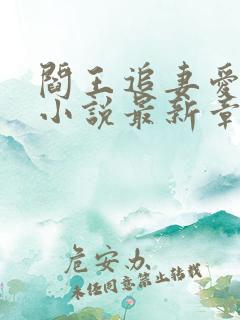 閻王追妻愛
小說最新章
危安办
未任同意禁止转载